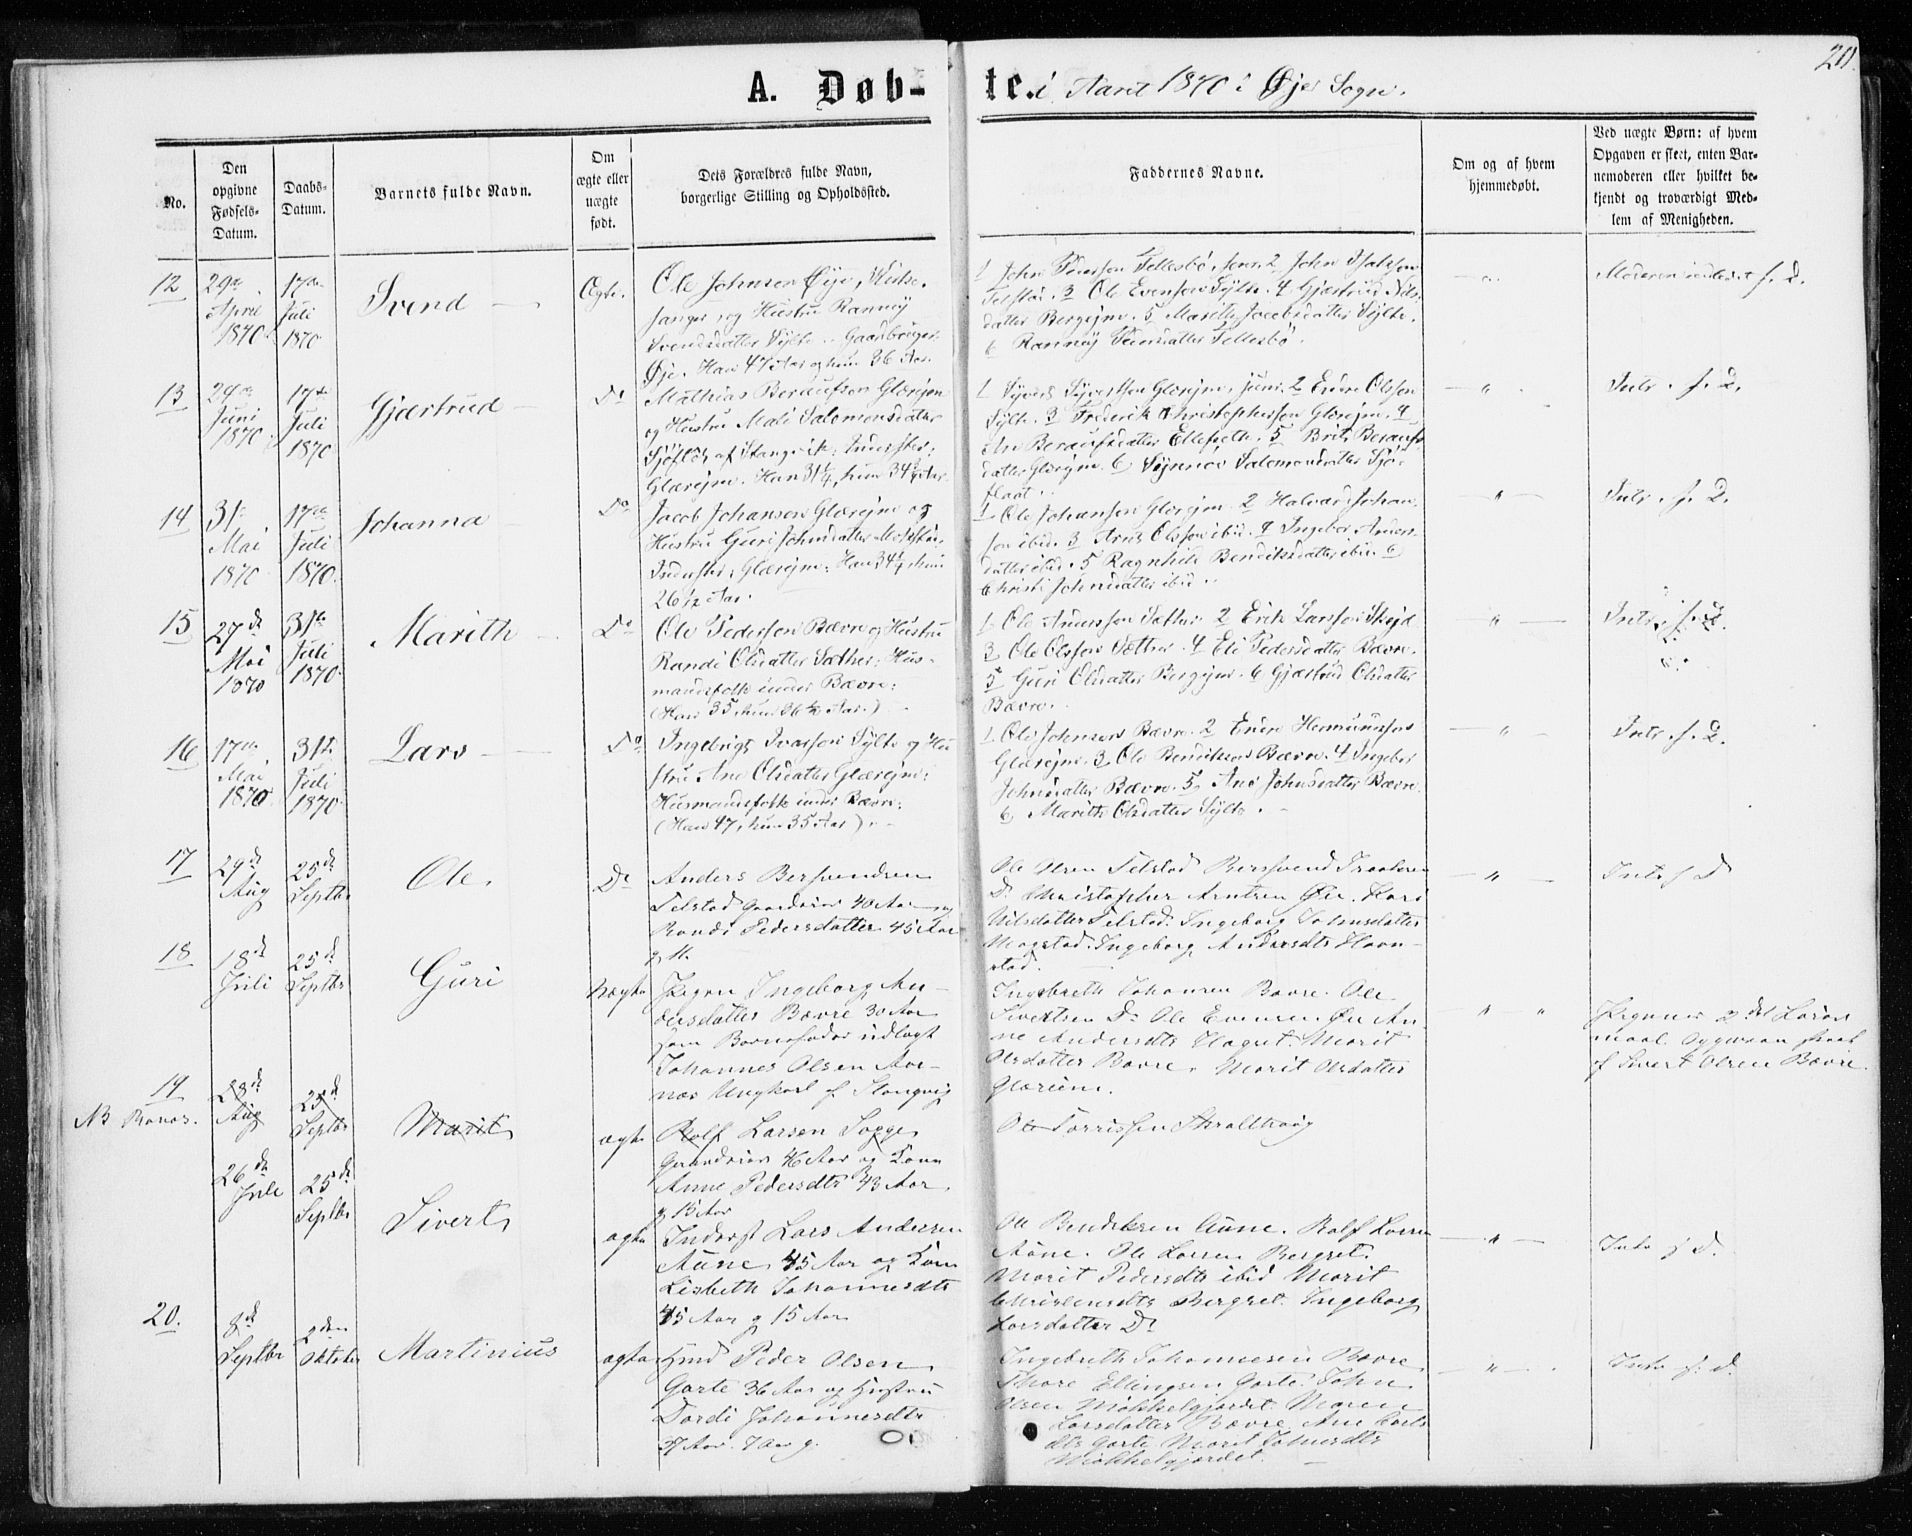 20.
A. Døb-te. i Aaret 1870 i Øje Sogn.
No.
Den opgivne Fødsels-Datum.
Daabs-Datum.
Barnets fulde Navn.
Om ægte eller uægte født.
Dets Forældres fulde Navn,
borgerlige Stilling og Opholdssted.
Faddernes Navne.
Om og af hvem
hjemmedøbt.
Ved uægte Børn: af hvem
Opgaven er skeet, enten Bar-
nemoderen eller hvilket be-
kjendt og troværdigt Med-
lem af Menigheden.
12
29de April 1870
17de Juli 1870
Svend
Ægte.
Ole Johnsen Øye,
sanger og Hustru Rannøy
Svendsdatter Sylte. Gaardbruger
Øje. Han 47 Aar og hun 36 Aar.
1 John Tellesbø, senr. 2 John
Telstad. 3 Ole Evensen Sylte. 4 Gjærtrud Nils-
datter Bergejm. 5 Marith Jacobsdatter Sylte.
6 Rannøy datter Tellesbø.
Moderen f. d.
13
29de Juni 1870
17de Juli 1870
Gjærtrud
Do
Mathias Glærejm
og Hustru Mali Salomonsdatter
Sjøflot af Stangvik: Inderster:
Glærejm. Han 31¼, hun 34½ Aar.
1 Syvert Syvertsen Glærejm, junr. 2 Endre Olsson
Sylte. 3 Frederik Christophersson Glærejm. 4
An datter 5 Brit
datter Glærejm. 6 Synnøv Salomonsdatter Sjø-
flaat.
Intr. f. d.
14
31te Mai 1870
17de Juli 1870
Johanna
Do
Jacob Johansen Glærejm og
Hustru Guri Johnsdatter
Inderster; Glærejm: Han 34¼, hun
26½ Aar.
1 Ole Johansen Glærejm 2 Halvard Johan-
son ibid. 3 Arnt Olsson ibid. 4 Ingebor Anders-
datter ibid. 5 Ragnhild Bendiksdatter ibid. 6
Christi Johnsdatter ibid.
Intr. f. d.
15
27de Mai 1870
31te Juli 1870
Marith
Do
Ole Pedersen Bævre og Hustru
Randi Olsdatter Sæther: Hus-
mandsfolk under Bævre:
(Han 35, hun 36½ Aar.)
1 Ole Andersson Sæther 2 Erik Larsson
3 Ole Olsson Sæther. 4 Eli Pedersdatter Bævre.
5 Guri Olsdatter Bergejm. 6 Gjærtrud Olsdatter
Bævre.
Intr. f. d.
16
17de Mai 1870
31te Juli 1870
Lars
Do
Ingebrigt Ivarsson Sylte og Hu-
stru Ane Olsdatter Glærejm:
Husmandsfolk under Bævre:
(Han 47, hun 35 Aar)
1 Ole Johnsen Bævre. 2 Endre Hermundsson
Glærejm. 3 Ole Bendiksen Bævre. 4 Ingebor
Johnsdatter Bævre. 5 Ane Johnsdatter Bævre
6 Marith Olsdatter Sylte.
Intr. f. d.
17
29de Aug
25de Septbr
Ole.
Do
Anders Bersvendsen
Telstad Gaardbrug 40 Aar og
Randi Pedersdatter 45 Aar
g 11.
Ole Olsen Telstad Bersvend
Do Christopher Arntsen Øie. Kari
Nilsdatter Telstad. Ingeborg Johnsdatter
Mogstad. Ingeborg Andersdtr Havn-
stad.
Into f D
18
18de Juli
25de Septbr
Guri
uægte
Pigen Ingeborg An-
dersdatter Bævre 30 Aar
som Barnefader udlagt
Johannes Olsen Aar-
næs Ungkarl af Stangvig
Ingebreth Johansen Bævre. Ole
Sivertsen Do Ole Evensen Øie An-
ne Andersdtr Hagset. Marit
Olsdatter Bævre. Marit Olsdatter
Glæriem.
Pigens 2det Leier-
maal. Opgaven skeet
af Sivert Olsen Bævre
19
NB
28de Aug
25de Septbr
Marit
ægte
Rolf Larsen Sogge
Gaardbrug 46 Aar og Kone
Anne Pedersdtr 43 Aar
g 13 Aar
Ole Torrissen
26de Juli
25de Septbr
Sivert
ægte
Inderst Lars Andersen
Aune 45 Aar og Kone
Lisbeth Johannesdtr
45 Aar g 15 Aar
Ole Bendiksen Aune. Rolf Larsen
Aune. Ole Larsen Bergset.
Marit Pedersdtr ibid Marit
Christensdtr Bergset. Ingeborg
Larsdatter Do
Into f D.
20.
8de Septbr
2den Oktober
Martinius
ægte
Hmd Peder Olsen
Garte 36 Aar og Hustru
Dordi Johannesdtr
37 Aar. 7 Aar g.
Ingebreth Johannesen Bævre
Thore Ellingsen Garte. John
Olsen Mikkelgjerdet Maren
Larsdatter Bævre Ane
dtr Garte Marit Johnsdtr
Mikkelgjerdet.
Into f. d.